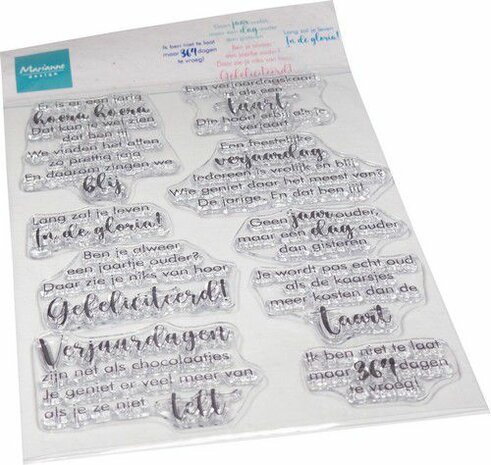 Marianne
design
Geen jaar ouder,
maar een dag ouder
dan gisteren
Lang zal je leven
In de gloria!
Ik ben niet te laat
maar 364 dagen
te vroeg!
Ben je alweer
een jaartje ouder?
Daar zie je niks van hoor
Gefeliciteerd!
Er is er een jarig
hoera hoera
Dat kan je wel zien
We vinden het allen
zo prettig jaja
En daarom zingen we
blij
Lang zal je leven
In de gloria!
Ben je alweer
een jaartje ouder?
Daar zie je niks van hoor
Gefeliciteerd!
Verjaardagen
zijn net als chocolaatjes
Je geniet er veel meer van
als je ze niet telt
Een verjaardagskaart
als een
taart
Die hoort erbij als je
verjaart
Een feestelijke
verjaardag
Iedereen is vrolijk en blij
Wie geniet daar het meest van?
De jarige. En dat ben jij!
Geen jaar ouder,
maar een dag ouder
dan gisteren
Je wordt pas echt oud
als de kaarsjes
meer kosten dan de
taart
Ik ben niet te laat
maar 364 dagen
te vroeg!